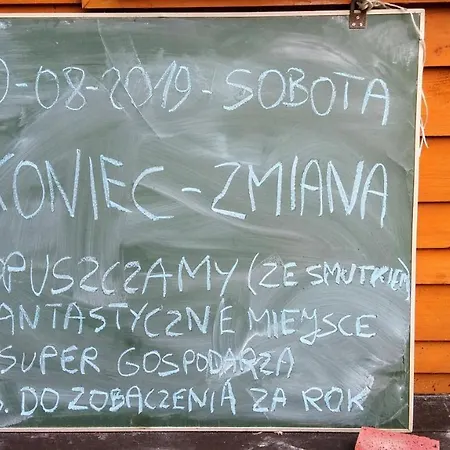 0-08-2019 - SOBOTA
KONIEC - ZMIANA
OPUSZCZAMY (ZE SMUTKIEM)
ANTASTYCZNE MIEJSCE
SUPER GOSPODARZA
. DO ZOBACZENIA ZA ROK